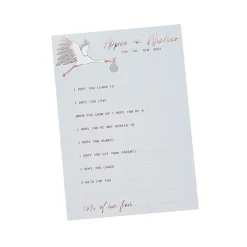 Hopes & Wishes
FOR THE NEW BABY
I HOPE YOU LEARN TO
I HOPE YOU LOVE
WHEN YOU GROW UP I HOPE YOU BE A
I HOPE YOU'RE NOT AFRAID TO
I HOPE YOU ALWAYS
I HOPE YOU GET YOUR PARENTS
I HOPE YOU LAUGH
I WISH FOR YOU
Lots of love from